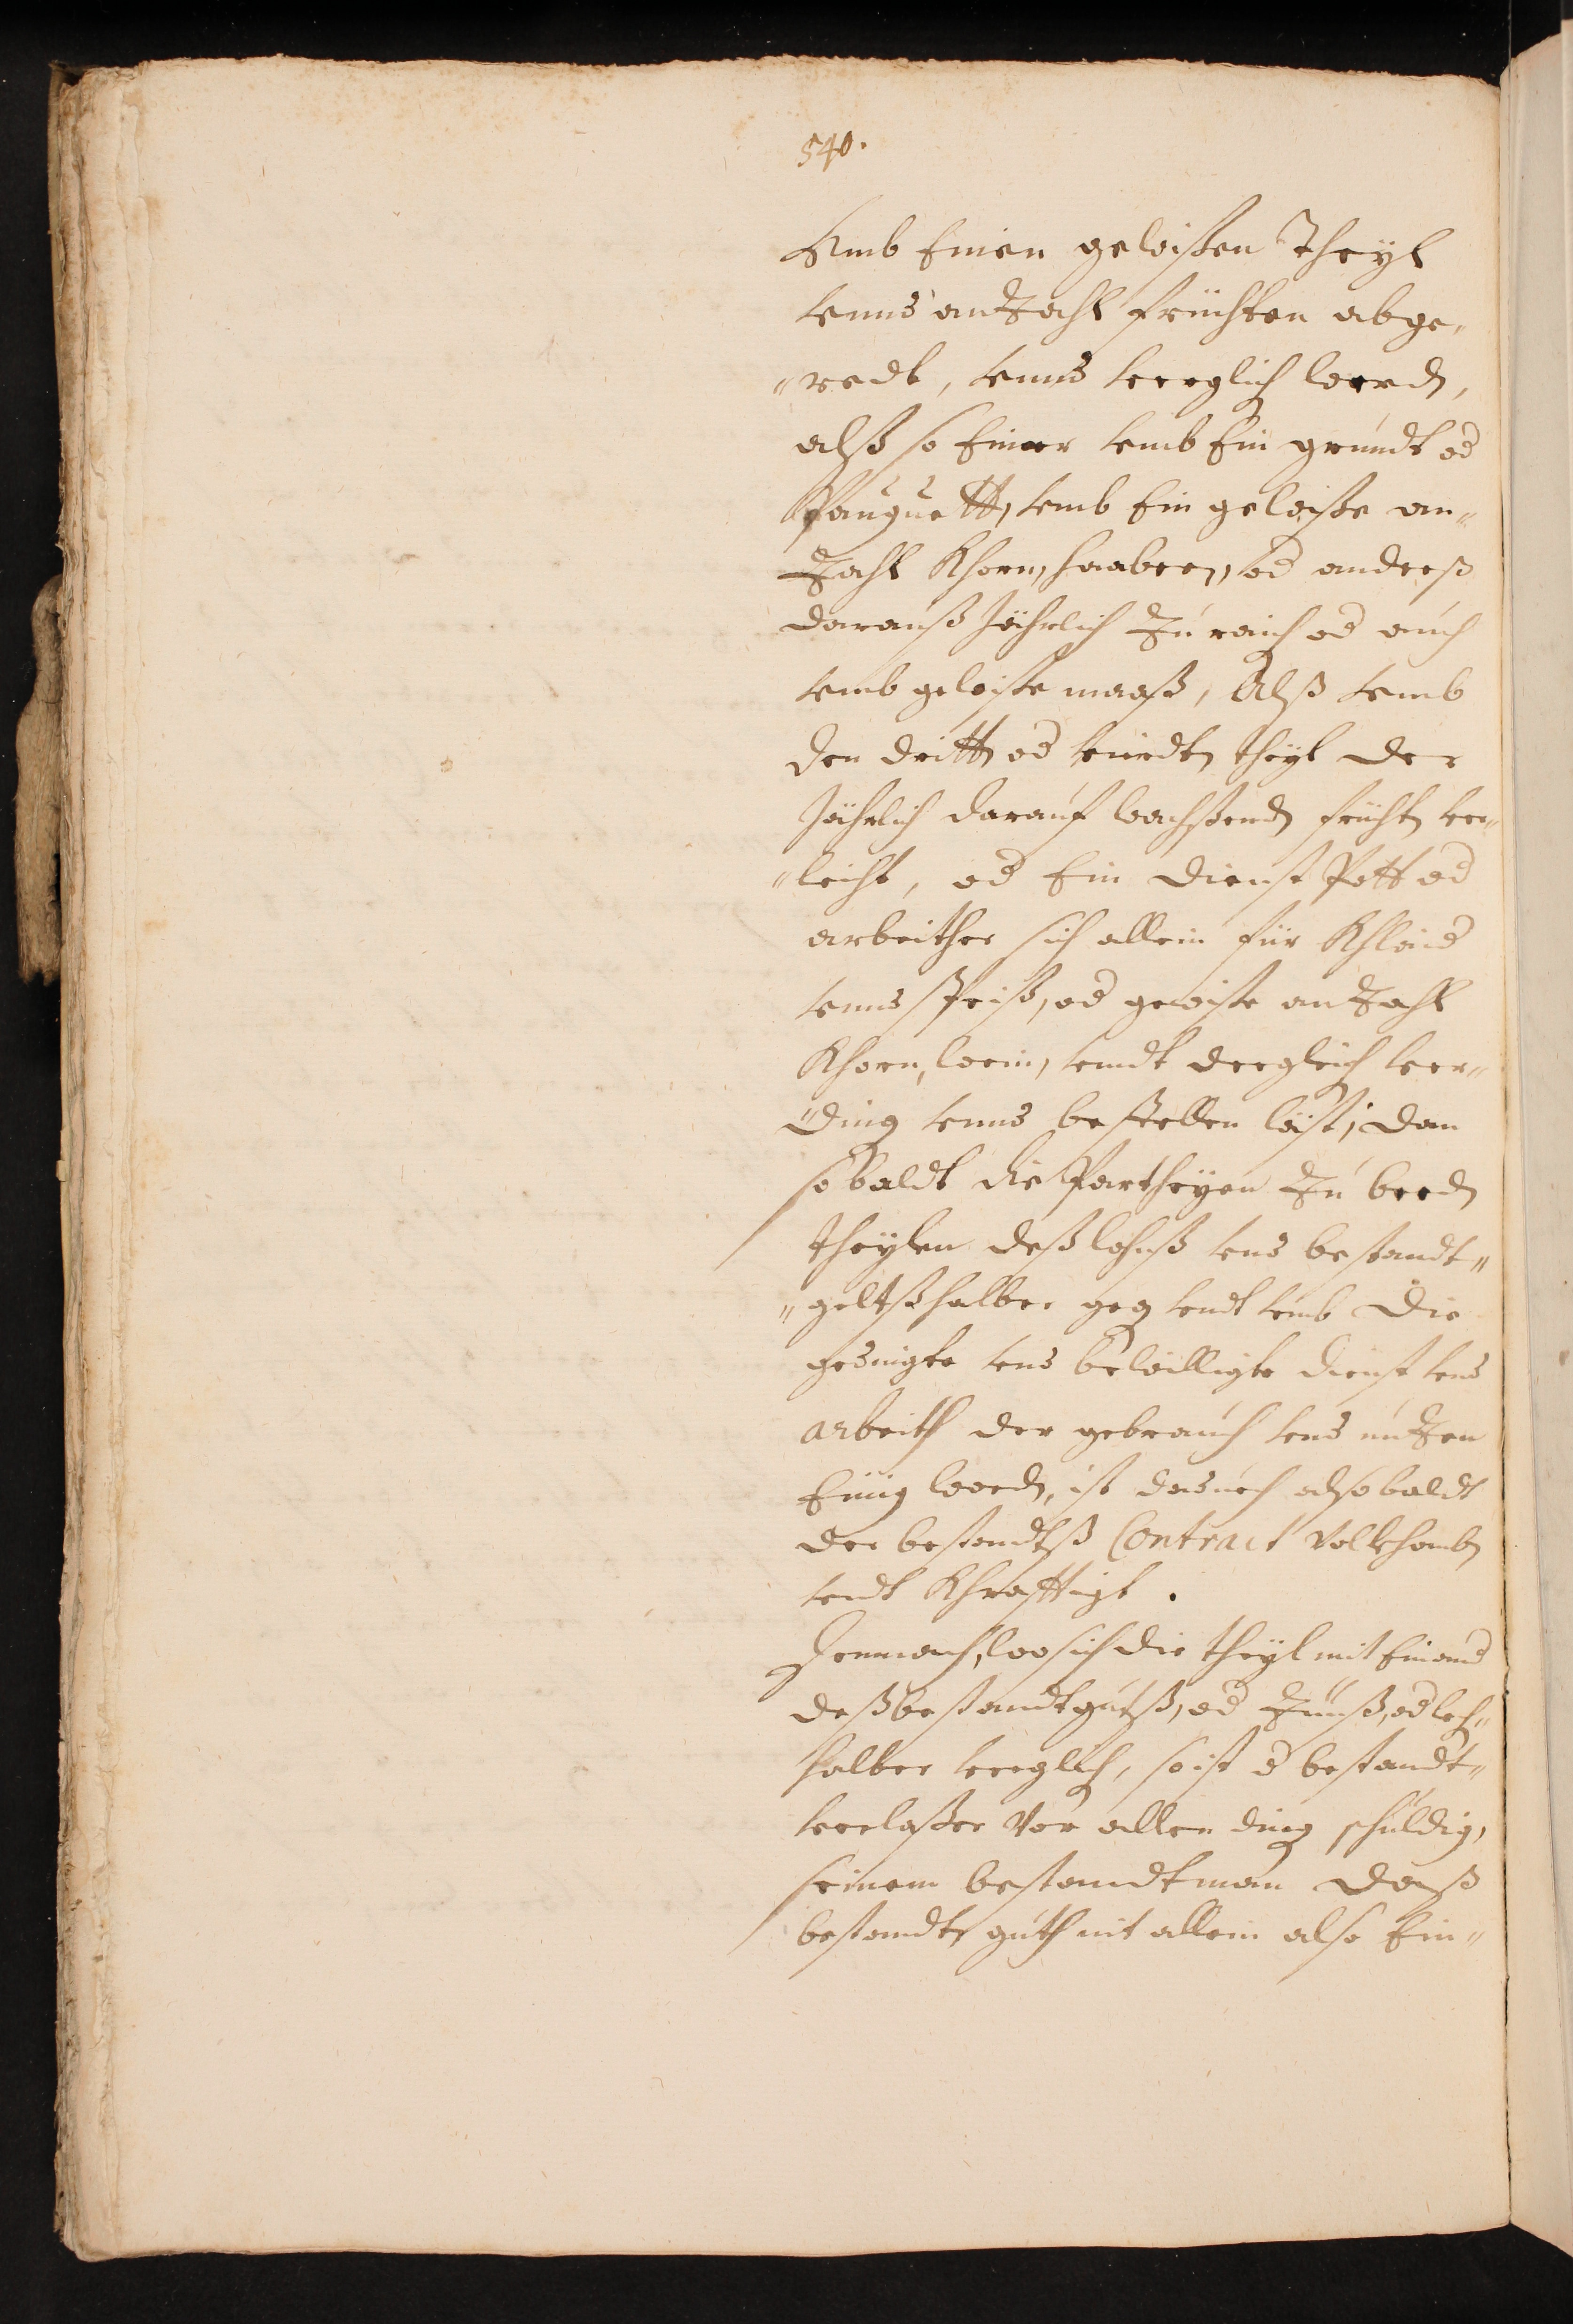 540.
Umb Einen gewißen Theÿl
unnd anZahl früchten abge„
„redt, unnd verglich werdn,
alß so Einer umb Ein grundt od
Pauguett, umb Ein gewiße an„
Zahl Khorn, haabern, od anderß
darauß Jährlich Zu raich od auch
umb gewiße maaß, Alß umb
den dritt od vierdtn theÿl der
Jährlich darauf wachßendn frücht ver„
„leicht, od Ein dienst Pott od
arbeither sich allein für Khlaid
unnd speiß, od gewiße anZahl
Khorn, wein, unndt dergleich ver„
„ding unnd bestellen läst, dan
so baldt die Partheÿen Zu beedn
theÿlen deß lohnß und bestandt„
„geltß halber geg undt umb die
gedingte und bewilligte dienst und
arbeith der gebrauch und nuzen
Einig werdn, ist darnach alsobaldt
der bestandtß Contract Vollkhombn
undt Khrafftigt.
Demnach, wo sich die theÿl mit Einand
deß bestandtgutß, od Zünß, od loh„
halber verglich, so ist d bestandt„
verlaßer Vor allen ding schuldig,
seinem bestandtman daß
bestandt guth nit allein also Ein„